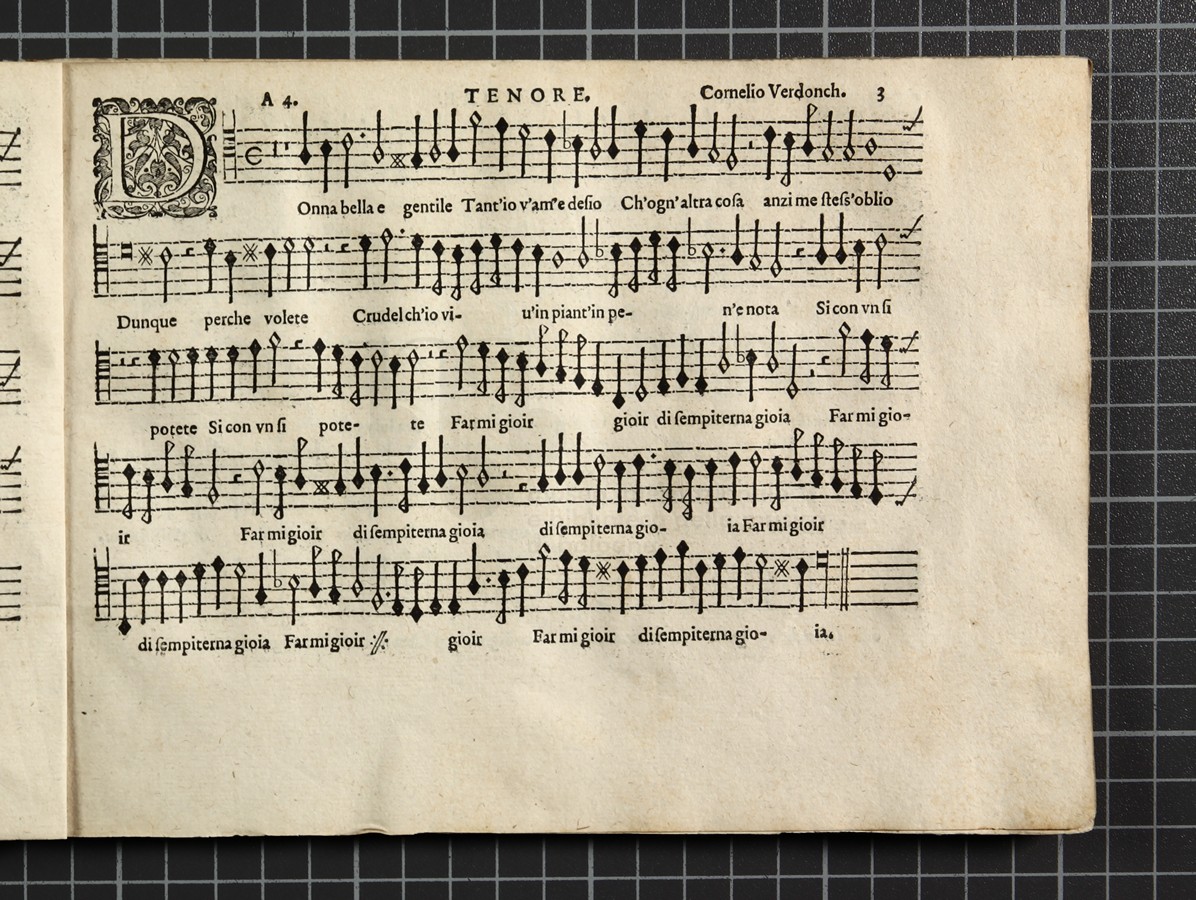 A 4. TENORE. Cornelio Verdonch. 3
DOnna bella e gentile Tant'io v'am'e desio Ch'ogn'altra cosa anzi me stess'oblio
Dunque perche volete Crudel ch'io vi- u'in piant'in pe- n'e nota Si con vn si
potete Si con vn si pote- te Far mi gioir gioir di sempiterna gioia Far mi gio-
ir Far mi gioir di sempiterna gioia di sempiterna gio- ia Far mi gioir
di sempiterna gioia Far mi gioir ://: gioir Far mi gioir di sempiterna gio- ia.